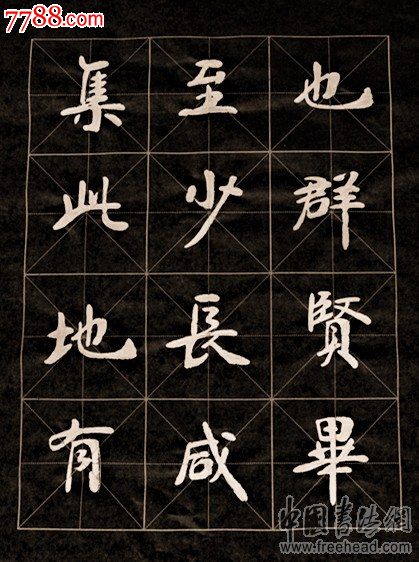 7788.com
也群賢畢
至少長咸
集此地有
中国書法網
www.freehead.com